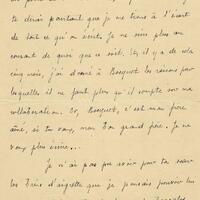 te dirai pourtant que je me tiens à l'écart
de tout ce qui s'écrit. Je ne suis plus au
courant de quoi que ce soit. Et, il y a de cela
cinq mois, j'ai donné à Bosquet les raisons pour
lesquelles il ne faut plus qu'il compte sur ma
collaboration. Or, Bosquet, c'est mon frère
aîné, si tu veux, mon bon grand frère. Je ne
veux plus écrire...
Je n'ai pas pu avoir pour ta sœur
les brins d'aigrette que je pensais pouvoir lui